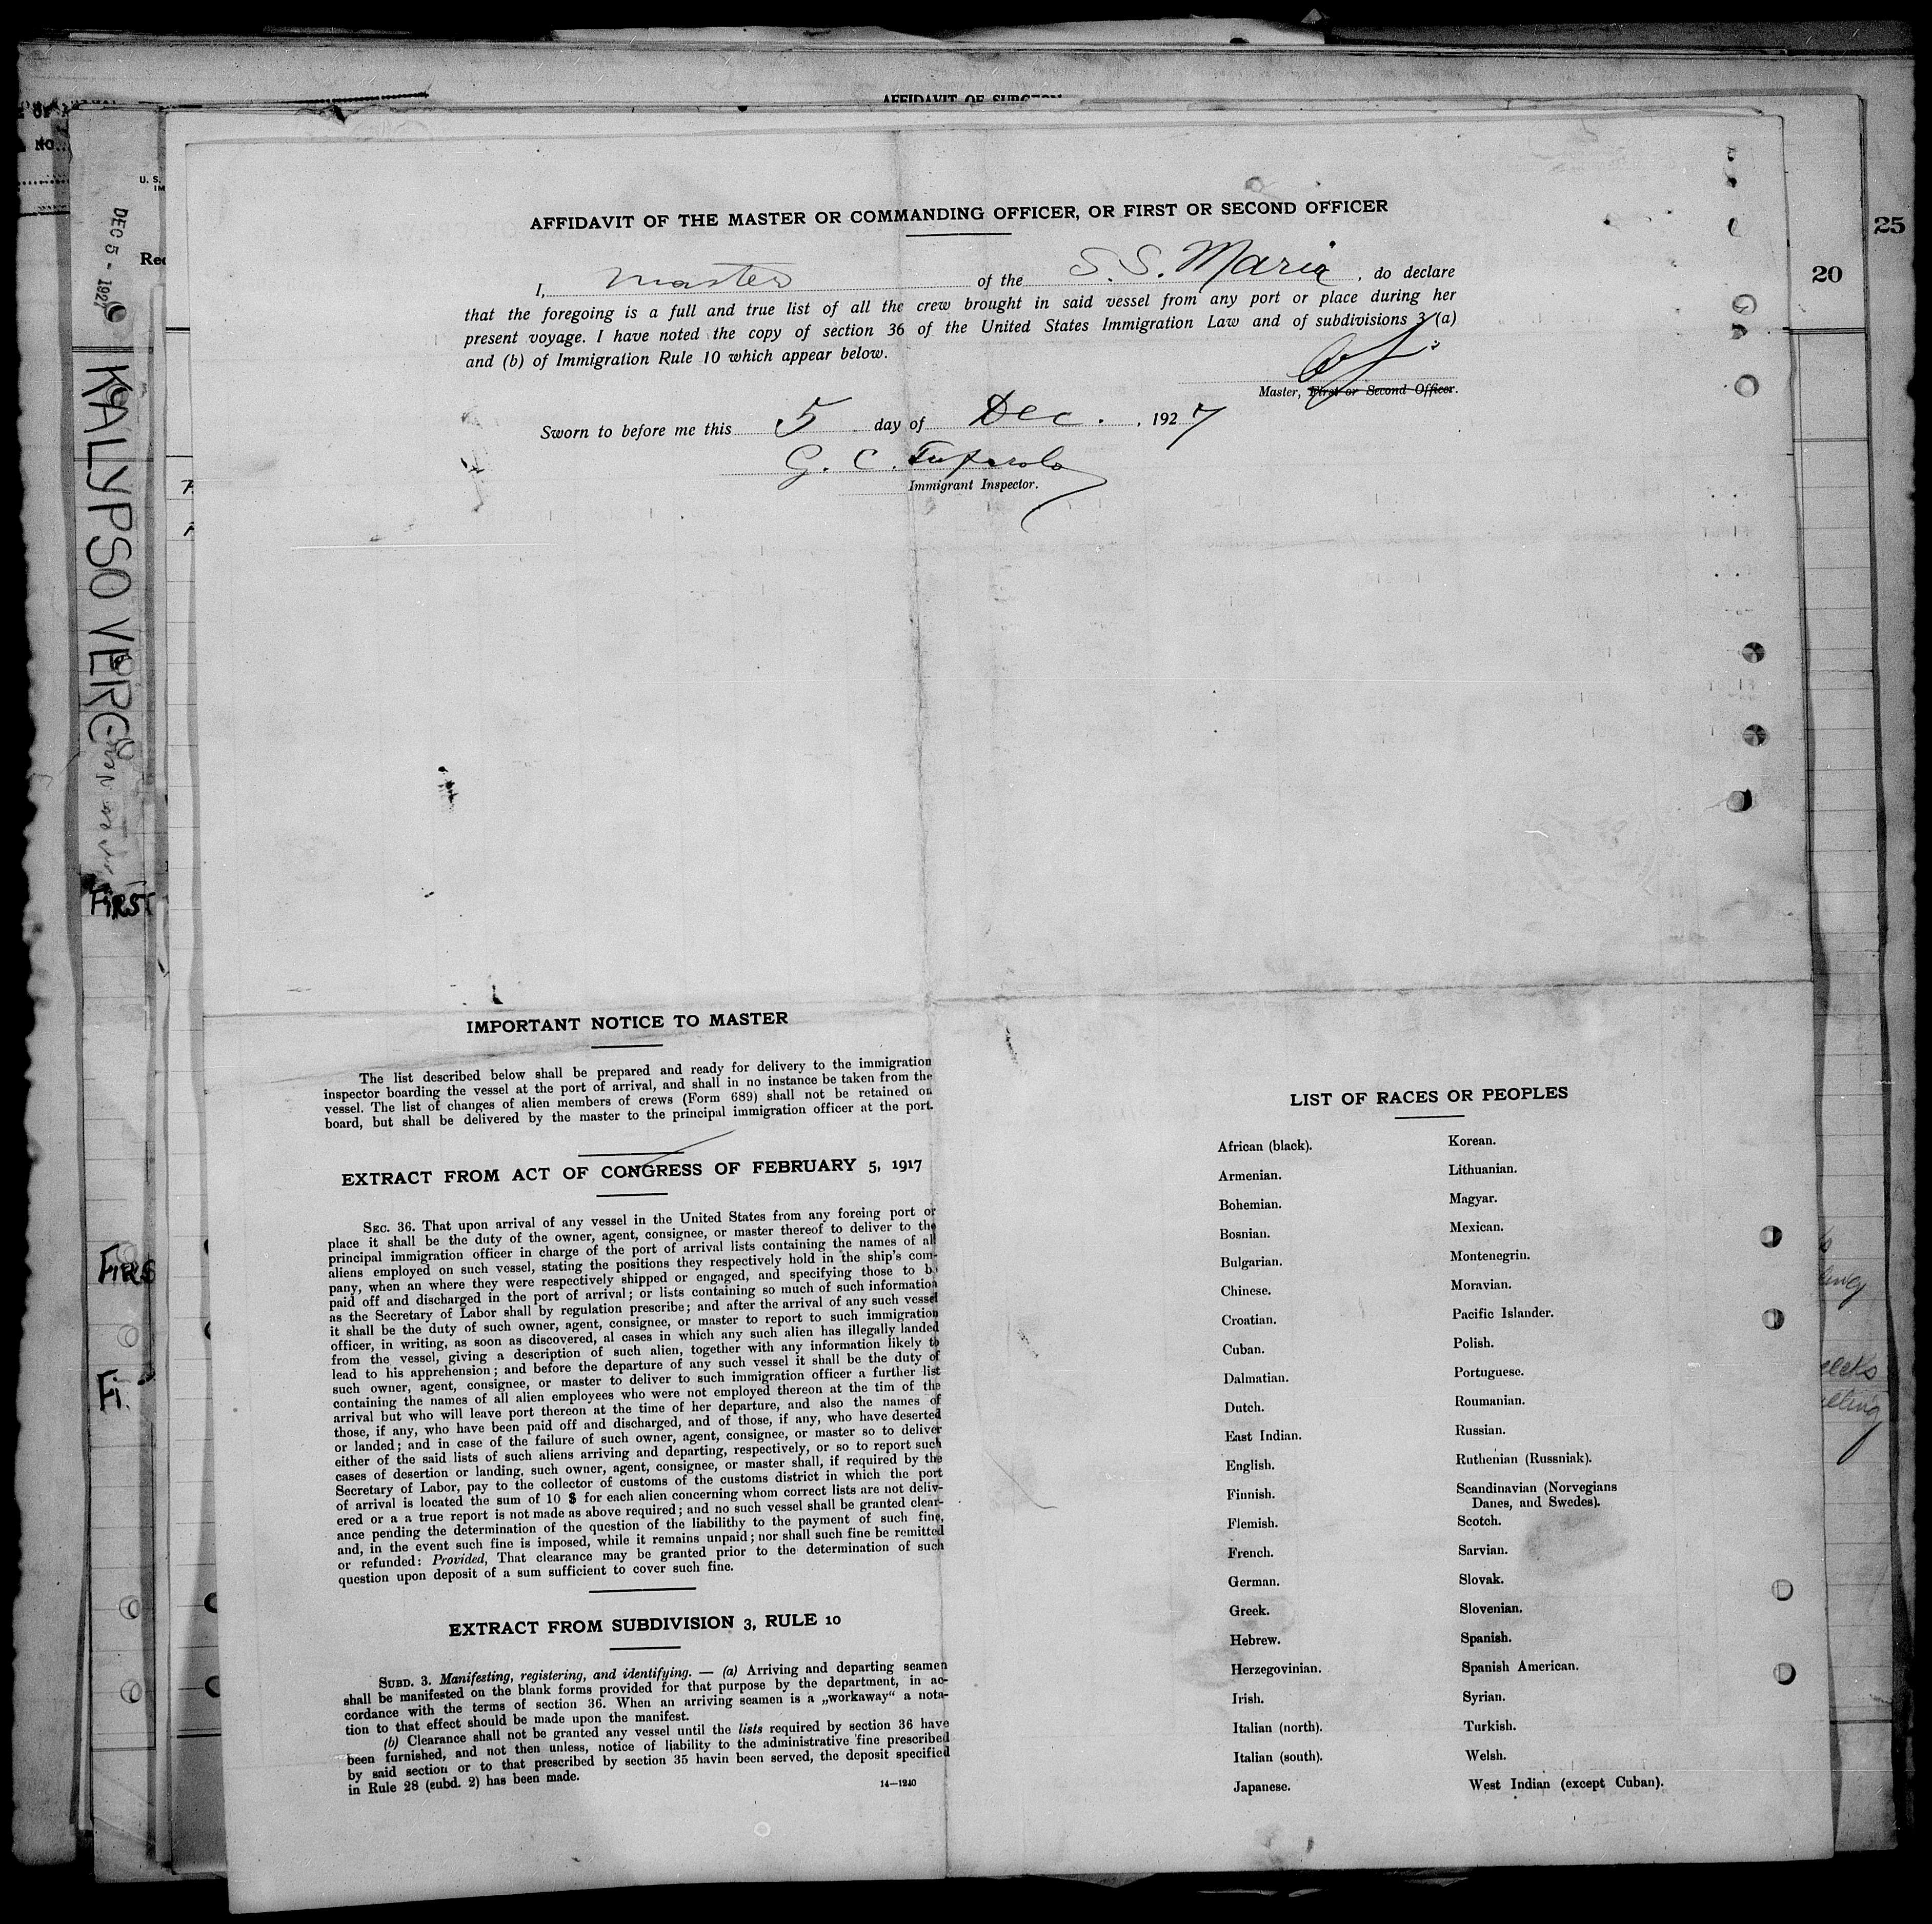 AFFIDAVIT OF SURGEON
DEC 5 - 1927
KALYPSO VERG
FIRST
FIRS
Fi
25
20
AFFIDAVIT OF THE MASTER OR COMMANDING OFFICER, OR FIRST OR SECOND OFFICER
I, Master of the S.S. Maria, do declare
that the foregoing is a full and true list of all the crew brought in said vessel from any port or place during her
present voyage. I have noted the copy of section 36 of the United States Immigration Law and of subdivisions 3 (a)
and (b) of Immigration Rule 10 which appear below.
Master, First or Second Officer.
Sworn to before me this 5 day of Dec. , 1927
G. C.
Immigrant Inspector.
IMPORTANT NOTICE TO MASTER
The list described below shall be prepared and ready for delivery to the immigration
inspector boarding the vessel at the port of arrival, and shall in no instance be taken from the
vessel. The list of changes of alien members of crews (Form 689) shall not be retained on
board, but shall be delivered by the master to the principal immigration officer at the port.
EXTRACT FROM ACT OF CONGRESS OF FEBRUARY 5, 1917
SEC. 36. That upon arrival of any vessel in the United States from any foreing port or
place it shall be the duty of the owner, agent, consignee, or master thereof to deliver to the
principal immigration officer in charge of the port of arrival lists containing the names of all
aliens employed on such vessel, stating the positions they respectively hold in the ship's com-
pany, when an where they were respectively shipped or engaged, and specifying those to be
paid off and discharged in the port of arrival; or lists containing so much of such information
as the Secretary of Labor shall by regulation prescribe; and after the arrival of any such vessel
it shall be the duty of such owner, agent, consignee, or master to report to such immigration
officer, in writing, as soon as discovered, al cases in which any such alien has illegally landed
from the vessel, giving a description of such alien, together with any information likely to
lead to his apprehension; and before the departure of any such vessel it shall be the duty of
such owner, agent, consignee, or master to deliver to such immigration officer a further list
containing the names of all alien employees who were not employed thereon at the tim of the
arrival but who will leave port thereon at the time of her departure, and also the names of
those, if any, who have been paid off and discharged, and of those, if any, who have deserted
or landed; and in case of the failure of such owner, agent, consignee, or master so to deliver
either of the said lists of such aliens arriving and departing, respectively, or so to report such
cases of desertion or landing, such owner, agent, consignee, or master shall, if required by the
Secretary of Labor, pay to the collector of customs of the customs district in which the port
of arrival is located the sum of 10 $ for each alien concerning whom correct lists are not deliv-
ered or a a true report is not made as above required; and no such vessel shall be granted clear-
ance pending the determination of the question of the liabilithy to the payment of such fine,
and, in the event such fine is imposed, while it remains unpaid; nor shall such fine be remitted
or refunded: Provided, That clearance may be granted prior to the determination of such
question upon deposit of a sum sufficient to cover such fine.
EXTRACT FROM SUBDIVISION 3, RULE 10
SUBD. 3. Manifesting, registering, and identifying. — (a) Arriving and departing seamen
shall be manifested on the blank forms provided for that purpose by the department, in ac-
cordance with the terms of section 36. When an arriving seamen is a „workaway“ a nota-
tion to that effect should be made upon the manifest.
(b) Clearance shall not be granted any vessel until the lists required by section 36 have
been furnished, and not then unless, notice of liability to the administrative fine prescribed
by said section or to that prescribed by section 35 havin been served, the deposit specified
in Rule 28 (subd. 2) has been made.
14—1240
LIST OF RACES OR PEOPLES
African (black).
Armenian.
Bohemian.
Bosnian.
Bulgarian.
Chinese.
Croatian.
Cuban.
Dalmatian.
Dutch.
East Indian.
English.
Finnish.
Flemish.
French.
German.
Greek.
Hebrew.
Herzegovinian.
Irish.
Italian (north).
Italian (south).
Japanese.
Korean.
Lithuanian.
Magyar.
Mexican.
Montenegrin.
Moravian.
Pacific Islander.
Polish.
Portuguese.
Roumanian.
Russian.
Ruthenian (Russniak).
Scandinavian (Norvegians
Danes, and Swedes).
Scotch.
Sarvian.
Slovak.
Slovenian.
Spanish.
Spanish American.
Syrian.
Turkish.
Welsh.
West Indian (except Cuban).